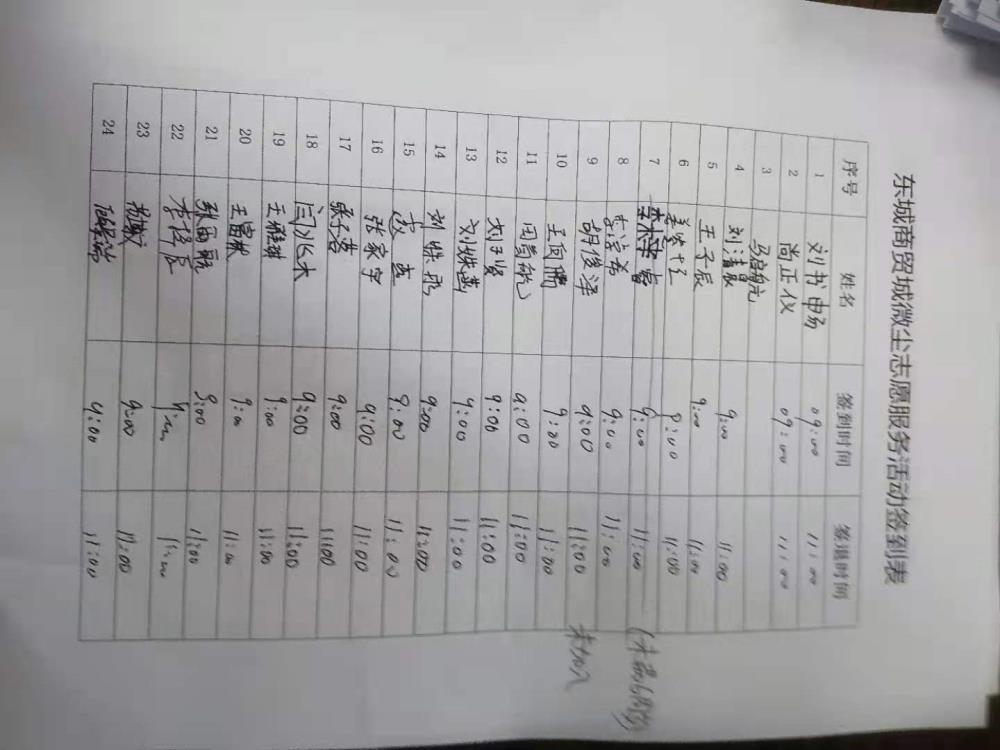 东城商贸城微尘志愿服务活动签到表
序号 姓名 签到时间 签退时间
1 刘书申 09:00 11:00
2 尚正仪 09:00 11:00
3 马启航
4 刘清晨 9:00 11:00
5 王子辰 9:00 11:00
6 9:00 11:00
7 李林宇 9:00 11:00
8 李宗希 9:00 11:00
9 胡俊泽 9:00 11:00
10 王向鹏 9:00 11:00
11 田哲航 9:00 11:00
12 刘子贤 9:00 11:00
13 刘姝燕 9:00 11:00
14 刘姝 9:00 11:00
15 9:00 11:00
16 张家宇 9:00 11:00
17 张子若 9:00 11:00
18 闫兆木 9:00 11:00
19 王雅琪 9:00 11:00
20 王富 9:00 11:00
21 张雨 9:00 11:00
22 李 9:00 11:00
23 杨 9:00 11:00
24 9:00 11:00
未加入